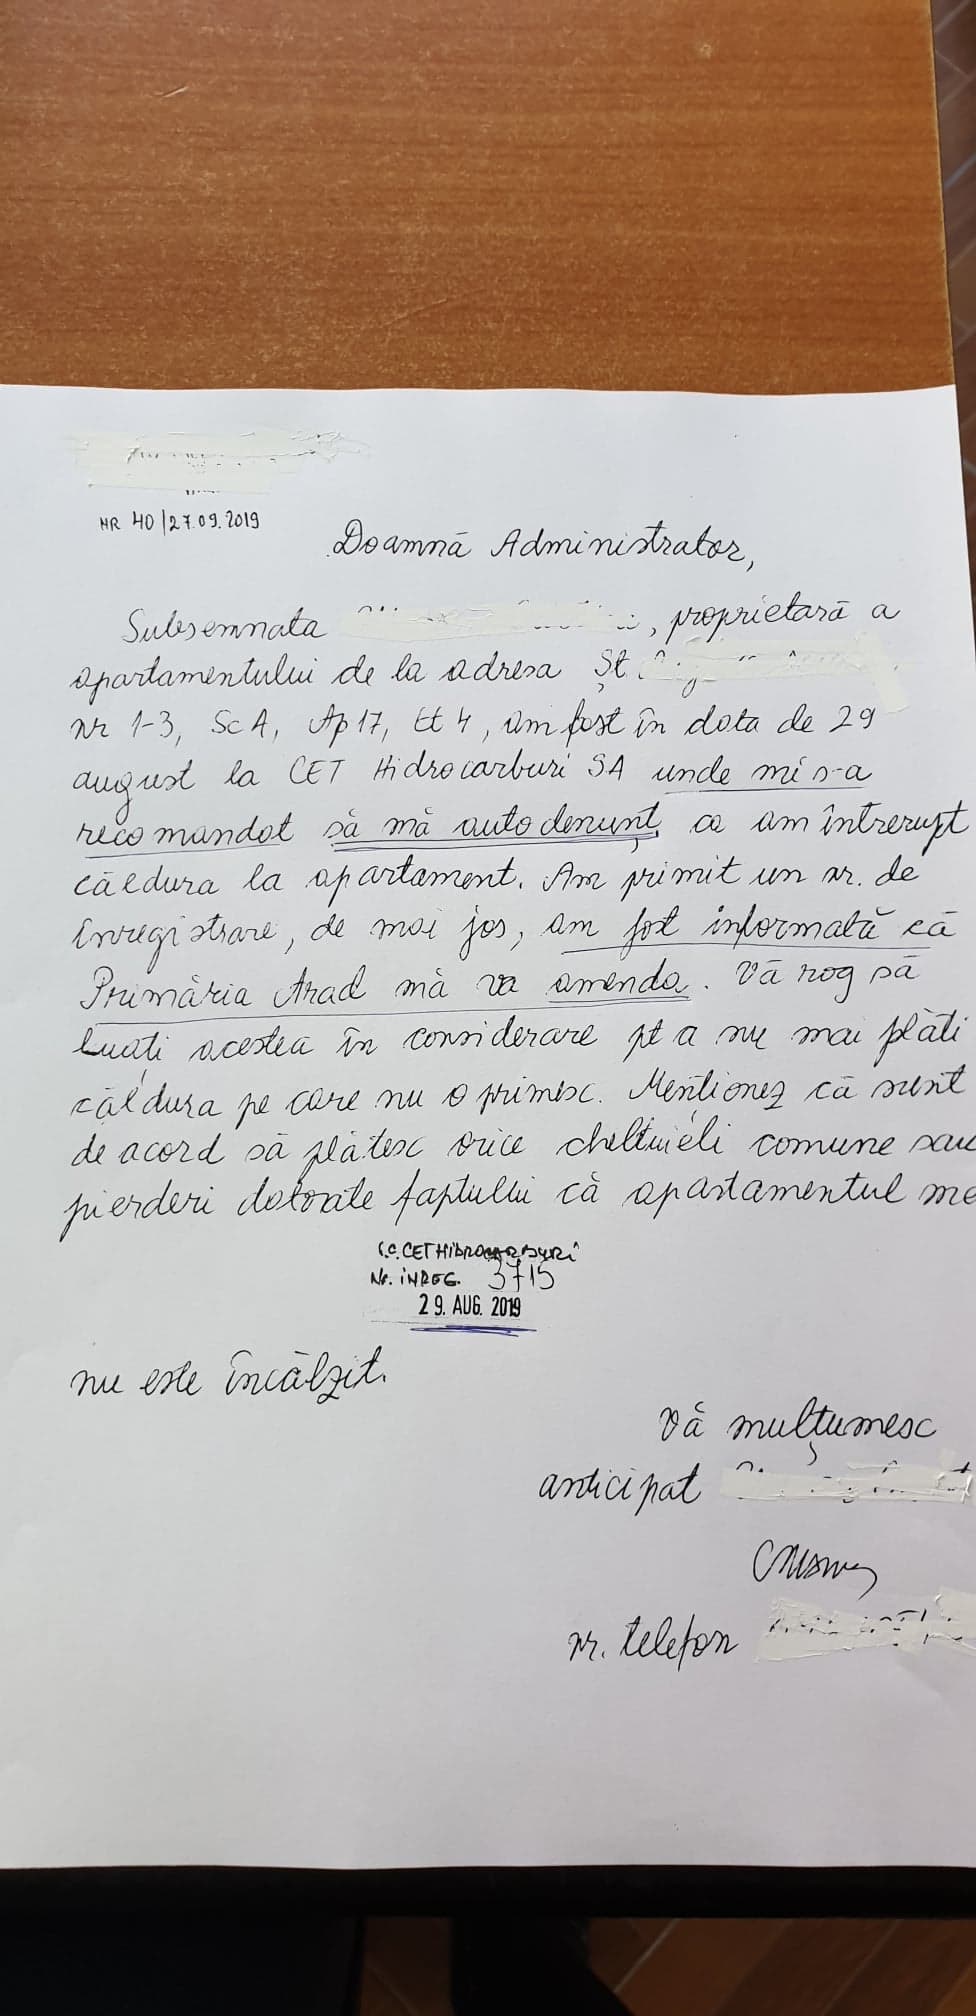 NR 40/27.09.2019
Doamnă Administrator,
Subsemnata , proprietară a
apartamentului de la adresa Șt
nr 1-3, Sc A, Ap 17, Et 4, am fost în data de 29
august la CET Hidrocarburi SA unde mi s-a
recomandat să mă autodenunț ca am întrerupt
căldura la apartament. Am primit un nr. de
înregistrare, de mai jos, am fost informată că
Primăria Arad mă va amenda. Vă rog să
luați acestea în considerare pt a nu mai plăti
căldura pe care nu o primesc. Menționez că sunt
de acord să plătesc orice cheltuieli comune sau
pierderi datorate faptului că apartamentul me
S.C. CET HIDROCARBURI
Nr. INREG. 3715
29. AUG. 2019
nu este încălzit.
Vă mulțumesc
anticipat
nr. telefon